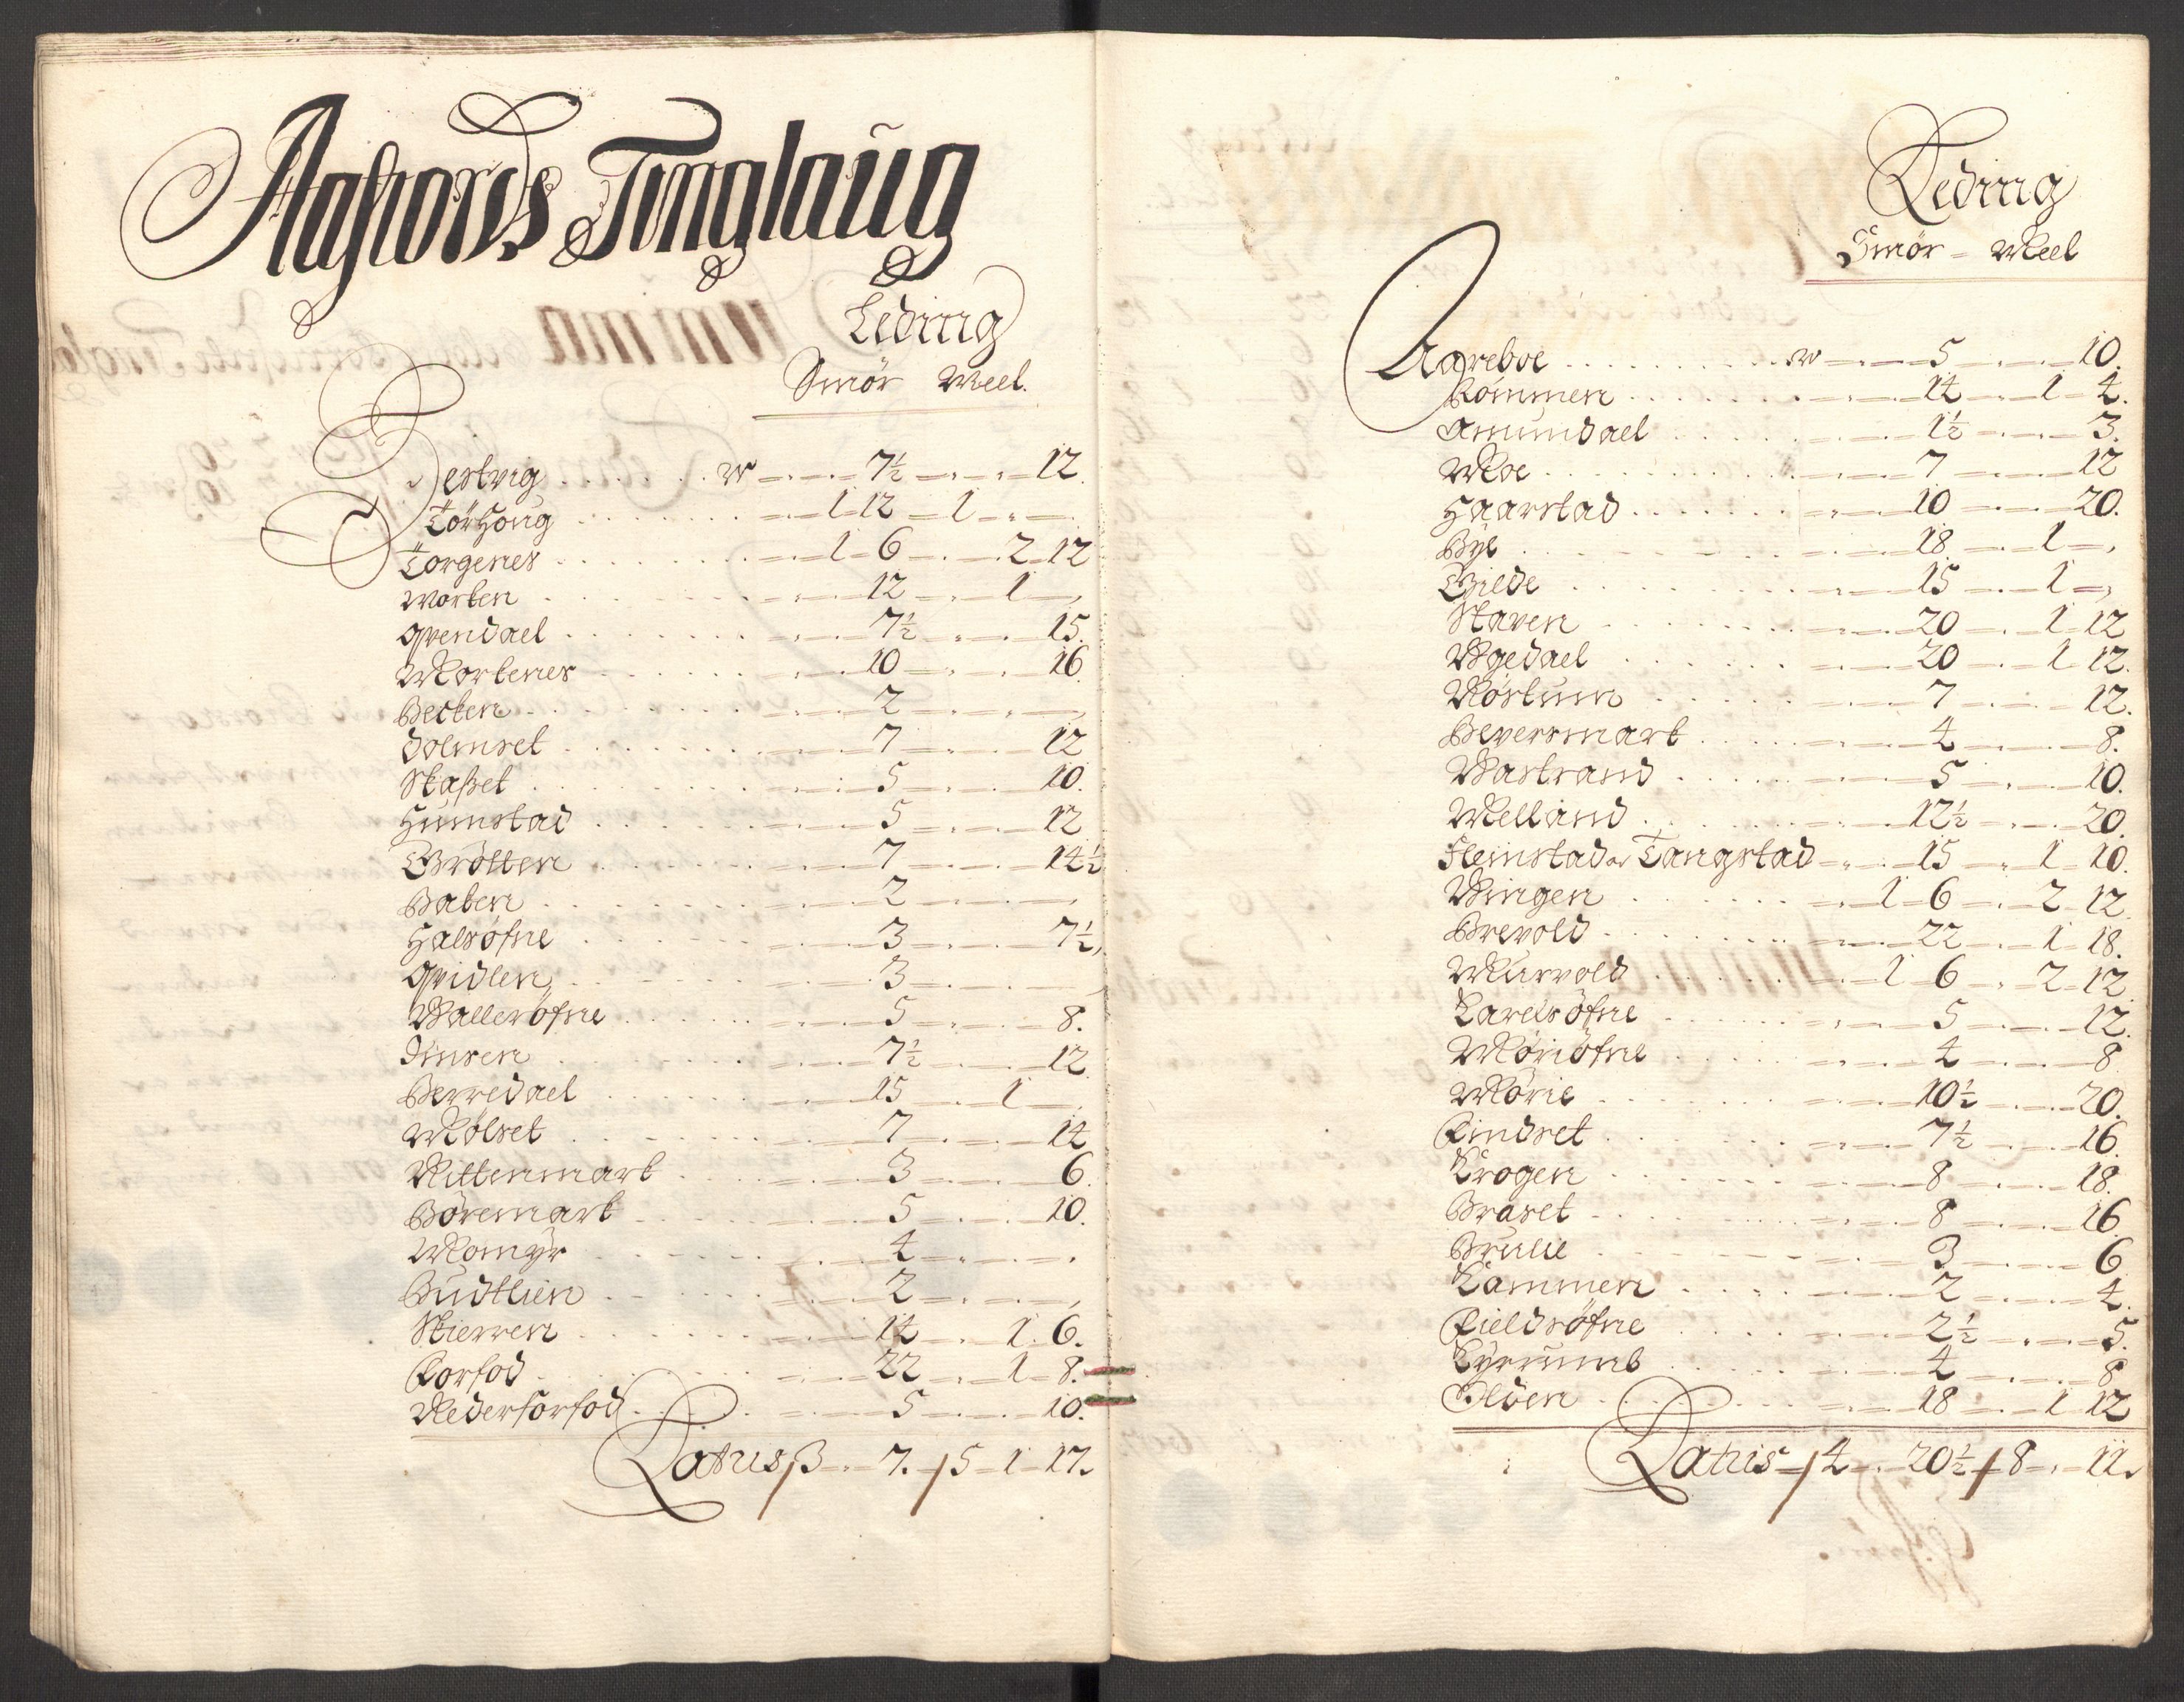 Aafiords Tinglaug
Leding
Smör Meel.
Hestvig . . . . . . W — 7½ — 12.
Törhoug . . . . . . 1 12 — 1 —
Torgenes . . . . . . 1 - 6 — 2 - 12
Morten . . . . . . 12 — 1 —
Qvendael . . . . . . 7½ — 15.
Mortenes . . . . . . 10 — 16.
Becken . . . . . . 2 —
Dolmset . . . . . . 7 — 12
Staßet . . . . . . 5 — 10.
Humstad . . . . . . 5 — 12
Grötten . . . . . . 7 — 14½
Baken . . . . . . 2 —
Halsöfne . . . . . . 3 — 7½
Qvidlen . . . . . . 3 —
Vallersöfne . . . . . . 5 — 8.
Jinsen . . . . . . 7½ — 12
Berredael . . . . . . 15 — 1 —
Mölset . . . . . . 7 — 14
Nittenmark . . . . . . 3 — 6.
Böremark . . . . . . 5 — 10.
Momÿr . . . . . . 4 —
Gudtlien . . . . . . 2 —
Skierren . . . . . . 14 — 1 . 6.
Forfod . . . . . . 22 — 1 - 8.
Nederforfod . . . . . . 5 — 10.
Latus / 3 — 7. / 5 - 1 - 17.
Leding
Smör - Meel
Aareboe . . . . . . W — 5 — 10.
Römmen . . . . . . 14 — 1 - 4.
Amundael . . . . . . 1½ — 3.
Moe . . . . . . 7 — 12
Haarstad . . . . . . 10 — 20.
Bÿe . . . . . . 18 — 1 —
Gilde . . . . . . 15 — 1 —
Staven . . . . . . 20 — 1 - 12
Ugedael . . . . . . 20 — 1 - 12.
Mörtum . . . . . . 7 — 12.
Beversmark . . . . . . 4 — 8.
Vastrand . . . . . . 5 — 10.
Melland . . . . . . 12½ — 20.
Heimstad or Tangstad — 15 — 1 - 10.
Vingen . . . . . . 1 - 6 — 2 - 12
Brevold . . . . . . 22 — 1 - 18.
Murvold . . . . . . 1 6 — 2 - 12.
Karelsöfne . . . . . . 5 — 12.
Möriöfne . . . . . . 4 — 8
Mörie . . . . . . 10½ — 20.
Findset . . . . . . 7½ — 16.
Krogen . . . . . . 8 — 18.
Braset . . . . . . 8 — 16
Brulie . . . . . . 3 — 6
Kammen . . . . . . 2 — 4.
Fieldsöfne . . . . . . 2½ — 5.
Kÿrrumb . . . . . . 4 — 8
Olden . . . . . . 18 — 1 12
Latus / 4 — 20½ / 8 — 11.